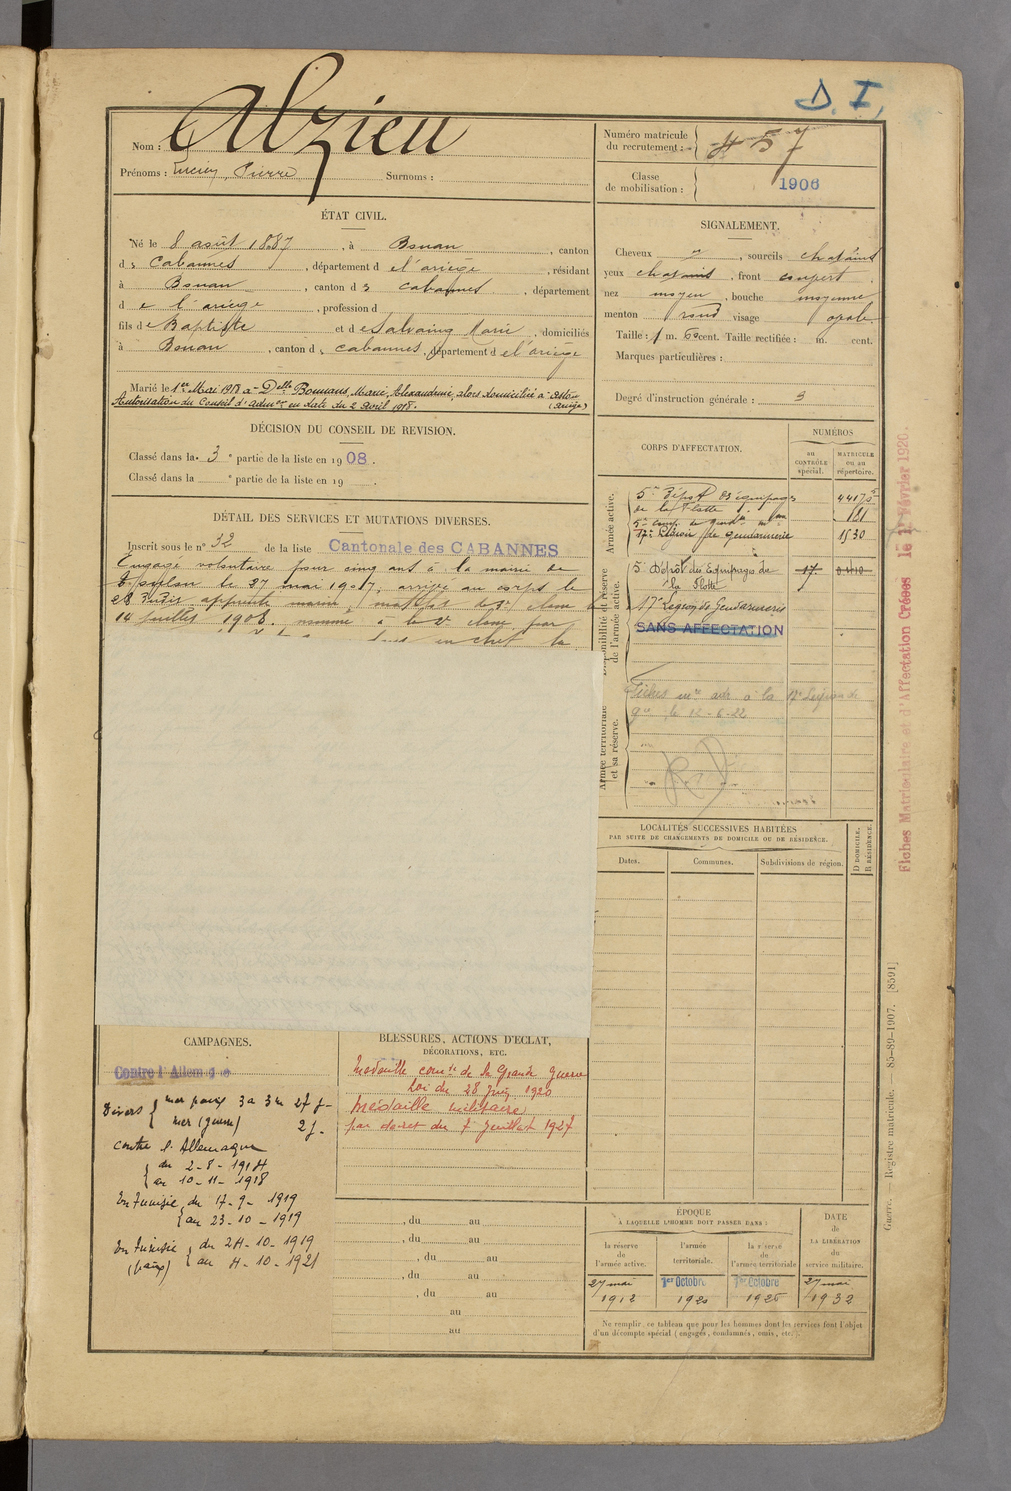 D. I.
Nom : Alzieu
Prénoms : Lucien, Pierre Surnoms :
Numéro matricule du recrutement : 457
Classe de mobilisation : 1906
ÉTAT CIVIL.
Né le 8 août 1887, à Bouan, canton
de Cabannes, département de l'ariège, résidant
à Bouan, canton de Cabannes, département
de l'ariège, profession d
fils de Baptiste et de Salvaing Marie, domiciliés
à Bouan, canton de Cabannes, département de l'ariège
Marié le 1er Mai 1918 à Delle Bonnans, Marie, Alexandrine, alors domiciliée à
Autorisation du Conseil d'admon en date du 2 avril 1918. (Ariège)
DÉCISION DU CONSEIL DE REVISION.
Classé dans la 3e partie de la liste en 1908.
Classé dans la e partie de la liste en 19 .
DÉTAIL DES SERVICES ET MUTATIONS DIVERSES.
Inscrit sous le n° 32 de la liste Cantonale des CABANNES
Engagé volontaire pour cinq ans à la mairie de
le 27 mai 1907, arrivé au corps le
28 dudit apprenti marin, matelot de 3e classe le
14 juillet 1908. nommé à la 2e classe par
en chef la
SIGNALEMENT.
Cheveux , sourcils chatains
yeux chatains, front couvert
nez moyen, bouche moyenne
menton rond visage ovale
Taille : 1 m. 60 cent. Taille rectifiée : m. cent.
Marques particulières :
Degré d'instruction générale : 3
CORPS D'AFFECTATION.
NUMÉROS
au CONTRÔLE spécial.
MATRICULE ou au répertoire.
Armée active.
5e Dépôt des équipages
de la Flotte 44175
121
17e Légion de gendarmerie 1530
Disponibilité et réserve de l'armée active.
5e Dépôt des Equipages de
la Flotte
17e Légion de Gendarmerie
SANS AFFECTATION
Armée territoriale et sa réserve.
Fiches mles adr à la 17e Légion de
gie le 12-6-22
Fiches Matriculaire et d'Affectation Créées le 1er Février 1920.
LOCALITÉS SUCCESSIVES HABITÉES
PAR SUITE DE CHANGEMENTS DE DOMICILE OU DE RÉSIDENCE.
Dates.
Communes.
Subdivisions de région.
D DOMICILE.
R RÉSIDENCE.
Guerre. — Registre matricule. — 85-89-1907. [8591]
CAMPAGNES.
Contre l'Allemagne
Divers { mer paix 3a 3m 27j-
mer (guerre) 2j-
Contre l'Allemagne
{ du 2-8-1914
au 10-11-1918
En Tunisie { du 17-9-1919
au 23-10-1919
En Tunisie { du 24-10-1919
(paix) au 4-10-1921
BLESSURES, ACTIONS D'ÉCLAT,
DÉCORATIONS, ETC.
Médaille comve de la Grande Guerre
Loi du 28 Juin 1920
Médaille militaire
par décret du 7 Juillet 1927
, du au
, du au
, du au
, du au
, du au
au
au
ÉPOQUE
À LAQUELLE L'HOMME DOIT PASSER DANS :
la réserve de l'armée active.
l'armée territoriale.
la réserve de l'armée territoriale
DATE de LA LIBÉRATION du service militaire.
27 mai 1912
1er Octobre 1920
1er Octobre 1926
27 mai 1932
Ne remplir ce tableau que pour les hommes dont les services font l'objet
d'un décompte spécial (engagés, condamnés, omis, etc.)